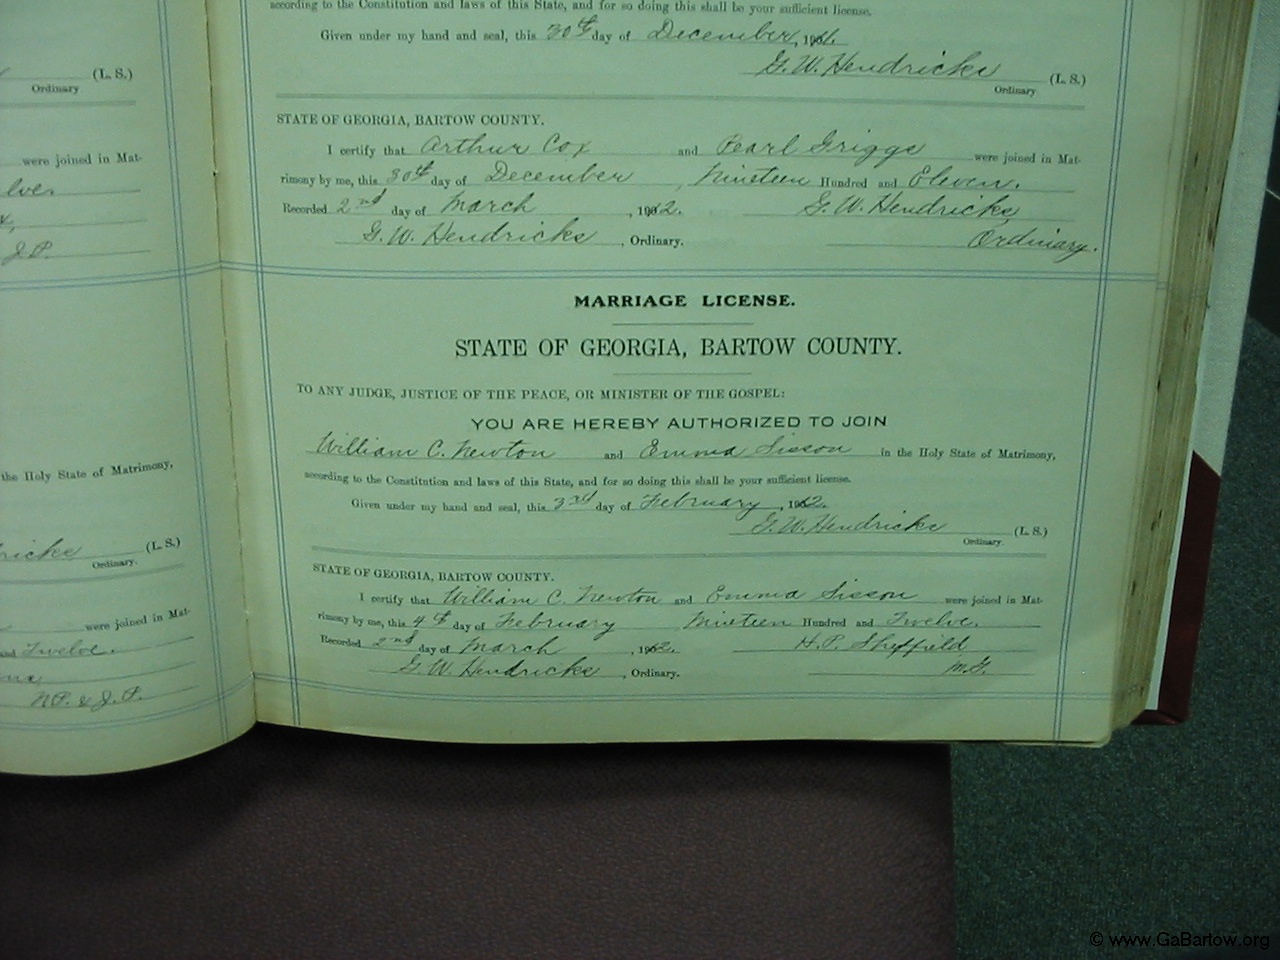 according to the Constitution and laws of this State, and for so doing this shall be your sufficient license.
Given under my hand and seal, this 30th day of December, 1911.
G. W. Hendricks (L. S.)
Ordinary
STATE OF GEORGIA, BARTOW COUNTY.
I certify that Arthur Cox and Pearl Griggs were joined in Mat-
rimony by me, this 30th day of December, Nineteen Hundred and Eleven.
Recorded 2nd day of March, 1912. G. W. Hendricks,
G. W. Hendricks, Ordinary. Ordinary.
MARRIAGE LICENSE.
STATE OF GEORGIA, BARTOW COUNTY.
TO ANY JUDGE, JUSTICE OF THE PEACE, OR MINISTER OF THE GOSPEL:
YOU ARE HEREBY AUTHORIZED TO JOIN
William C. Newton and Emma Sisson in the Holy State of Matrimony,
according to the Constitution and laws of this State, and for so doing this shall be your sufficient license.
Given under my hand and seal, this 3rd day of February, 1912.
G. W. Hendricks (L. S.)
Ordinary.
STATE OF GEORGIA, BARTOW COUNTY.
I certify that William C. Newton and Emma Sisson were joined in Mat-
rimony by me, this 4th day of February Nineteen Hundred and Twelve.
Recorded 2nd day of March, 1912. H. P. Sheffield
G. W. Hendricks, Ordinary. M. G.
(L. S.)
Ordinary
were joined in Mat-
J. P.
the Holy State of Matrimony,
(L. S.)
Ordinary.
were joined in Mat-
and Twelve.
N.P. & J. P.
© www.GaBartow.org